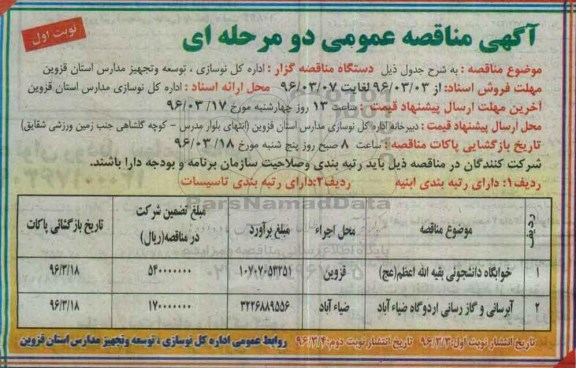 نوبت اول
آگهی مناقصه عمومی دو مرحله ای
موضوع مناقصه : به شرح جدول ذیل دستگاه مناقصه گزار : اداره کل نوسازی ، توسعه وتجهیز مدارس استان قزوین
مهلت فروش اسناد: از ۹۶/۰۳/۰۳ لغایت ۹۶/۰۳/۰۷ محل ارائه اسناد : اداره کل نوسازی مدارس استان قزوین
آخرین مهلت ارسال پیشنهاد قیمت : ساعت ۱۳ روز چهارشنبه مورخ ۹۶/۰۳/۱۷
محل ارسال پیشنهاد قیمت : دبیرخانه اداره کل نوسازی مدارس استان قزوین (انتهای بلوار مدرس - کوچه گلشاهی جنب زمین ورزشی شقایق)
تاریخ بازگشایی پاکات مناقصه : ساعت ۸ صبح روز پنج شنبه مورخ ۹۶/۰۳/۱۸
شرکت کنندگان در مناقصه ذیل باید رتبه بندی وصلاحیت سازمان برنامه و بودجه دارا باشند.
ردیف۱: دارای رتبه بندی ابنیه ردیف۲:دارای رتبه بندی تاسیسات
ردیف موضوع مناقصه محل اجراء مبلغ برآورد مبلغ تضمین شرکت در مناقصه(ریال) تاریخ بازگشائی پاکات
۱ خوابگاه دانشجوئی بقیه الله اعظم(عج) قزوین ۱۰۷۰۷۰۵۳۲۵۱ ۵۴۰۰۰۰۰۰۰ ۹۶/۳/۱۸
۲ آبرسانی و گاز رسانی اردوگاه ضیاء آباد ضیاء آباد ۳۲۲۶۸۸۹۵۵۶ ۱۷۰۰۰۰۰۰۰ ۹۶/۳/۱۸
تاریخ انتشار نوبت اول:۹۶/۳/۳ تاریخ انتشار نوبت دوم:۹۶/۳/۴ روابط عمومی اداره کل نوسازی ، توسعه وتجهیز مدارس استان قزوین
ParsNamadData